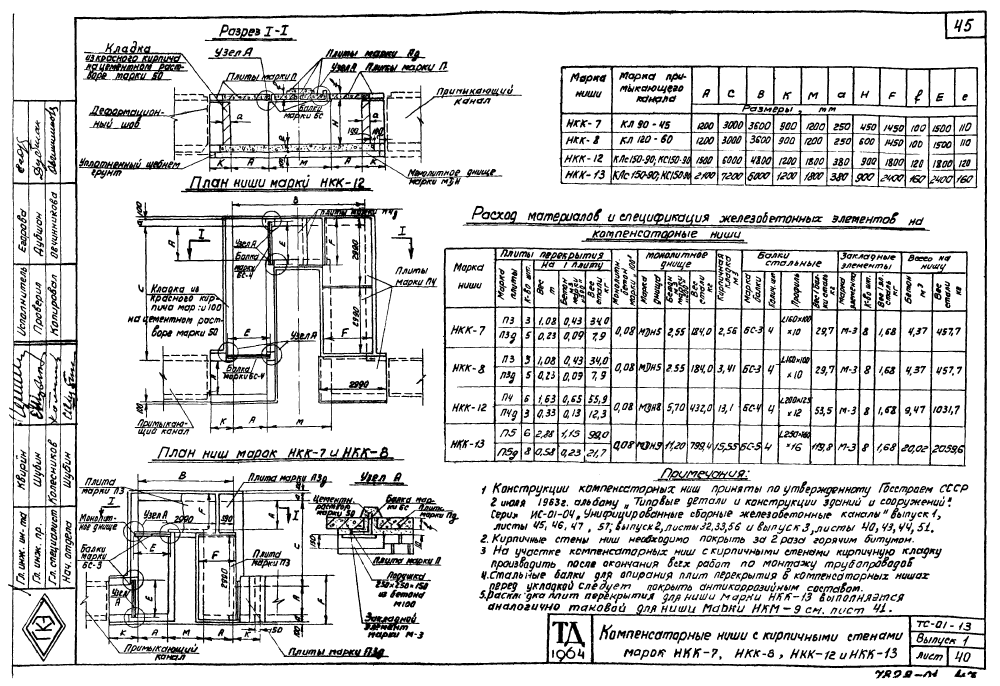 45
Разрез I-I
Кладка
из красного кирпича
на цементном раст-
воре марки 50
Узел А
Плиты марки П
Плиты марки Пд
Узел А Плиты марки П.
Балки
марки БС
Примыкающий
канал
Деформацион-
ный шов
Уплотненный щебнем
грунт
Монолитное днище
марки МДН
К А М А К
План ниши марки НКК-12
Узел А
Балка
марки
БС-4
Плиты марки П4д
Плиты
марки П4
Кладка из
красного кир-
пича марки 100
на цементном раст-
воре марки 50
Узел А
Балка
марки БС-4
2990
Примыкаю-
щий канал
К А М
План ниш марок НКК-7 и НКК-8
Плита
марки П3
Плита марки П3д
Монолит-
ное днище
Узел А
2990
590
Балки
марки
БС-3
Узел А
Плита
марки
П3
К А М А К
150
Примыкающий
канал
Плиты марки П3д
Узел А
Цементн.
раствор
марки 50
Балка мар-
ки БС
Плиты
марки Пд
Плита марки П
Подушка
250×250×150
из бетона
М100
Закладной
элемент
марки М-3
Марка ниши Марка примыкающего канала А С В К М а Н F f E e
Размеры, мм
НКК-7 КЛ 90-45 1200 3000 3600 900 1200 250 450 1450 100 1500 110
НКК-8 КЛ 120-60 1200 3000 3600 900 1200 250 600 1450 100 1500 110
НКК-12 КЛс150-90; КС150-90 1500 6000 4800 1200 1800 380 900 1800 120 1800 120
НКК-13 КЛс150-90; КС150-90 2100 7200 6000 1200 1800 380 900 2400 160 2400 160
Расход материалов и спецификация железобетонных элементов на
компенсаторные ниши
Марка ниши Плиты перекрытия Монолитное днище Кирпичная кладка м³ Балки стальные Закладные элементы Всего на нишу
На 1 плиту
НКК-7 П3 3 1,08 0,43 34,0 0,08 МДН5 2,55 184,0 2,56 БС-3 4 L160×100×10 29,7 М-3 8 1,68 4,37 457,7
П3д 5 0,23 0,09 7,9
НКК-8 П3 3 1,08 0,43 34,0 0,08 МДН5 2.55 184,0 3,41 БС-3 4 L160×100×10 29,7 М-3 8 1,68 4,37 457,7
П3д 5 0,23 0,09 7,9
НКК-12 П4 6 1,63 0,65 55,9 0,08 МДН8 5,70 432,0 13,1 БС-4 4 L200×125×12 53,5 М-3 8 1,68 9,47 1031,7
П4д 3 0,33 0,13 12,3
НКК-13 П5 6 2,88 1,15 99,0 0,08 МДН9 11,20 799,4 15,55 БС-5 4 L250×160×16 119,8 М-3 8 1,68 20,02 2059,6
П5д 8 0,58 0,23 21,7
Примечания:
1 Конструкции компенсаторных ниш приняты по утвержденному Госстроем СССР
2 июля 1963г. альбому „Типовые детали и конструкции зданий и сооружений".
Серия ИС-01-04 „Унифицированные сборные железобетонные каналы" выпуск 1,
листы 45, 46, 47, 57, выпуск 2, листы 32, 33, 56 и выпуск 3, листы 40, 43, 44, 51.
2. Кирпичные стены ниш необходимо покрыть за 2 раза горячим битумом.
3 На участке компенсаторных ниш с кирпичными стенами кирпичную кладку
производить после окончания всех работ по монтажу трубопроводов
4. Стальные балки для опирания плит перекрытия в компенсаторных нишах
перед укладкой следует покрыть антикоррозийным составом.
5. Раскладка плит перекрытия для ниши марки НКК-13 выполняется
аналогично таковой для ниши марки НКМ-9 см. лист 41.
ТД
1964
Компенсаторные ниши с кирпичными стенами
марок НКК-7, НКК-8, НКК-12 и НКК-13
ТС-01-13
Выпуск 1
Лист 40
7828-01 47
Исполнитель Егорова
Проверил Дубшан
Копировал Овчинникова
Гл. инж. ин-та Квирин
Гл. инж. пр. Шубин
Гл. специалист Колесников
Нач. отдела Шубин